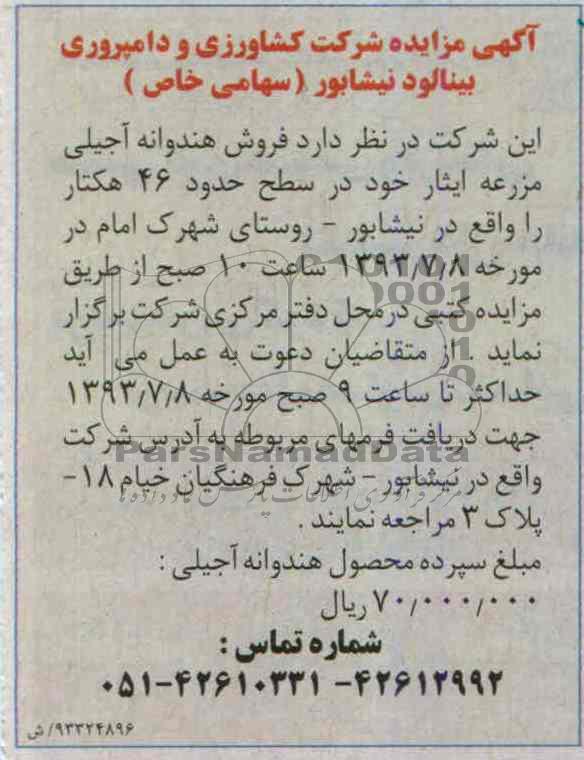 آگهی مزایده شرکت کشاورزی و دامپروری
بینالود نیشابور ( سهامی خاص )
این شرکت در نظر دارد فروش هندوانه آجیلی
مزرعه ایثار خود در سطح حدود ۴۶ هکتار
را واقع در نیشابور - روستای شهرک امام در
مورخه ۱۳۹۳/۷/۸ ساعت ۱۰ صبح از طریق
مزایده کتبی در محل دفتر مرکزی شرکت برگزار
نماید . از متقاضیان دعوت به عمل می آید
حداکثر تا ساعت ۹ صبح مورخه ۱۳۹۳/۷/۸
جهت دریافت فرمهای مربوطه به آدرس شرکت
ParsNamadData
واقع در نیشابور - شهرک فرهنگیان خیام ۱۸-
پلاک ۳ مراجعه نمایند .
مبلغ سپرده محصول هندوانه آجیلی :
۷۰/۰۰۰/۰۰۰ ریال
شماره تماس :
۰۵۱-۴۲۶۱۰۳۳۱ -۴۲۶۱۲۹۹۲
۹۳۳۲۴۸۹۶/ ش